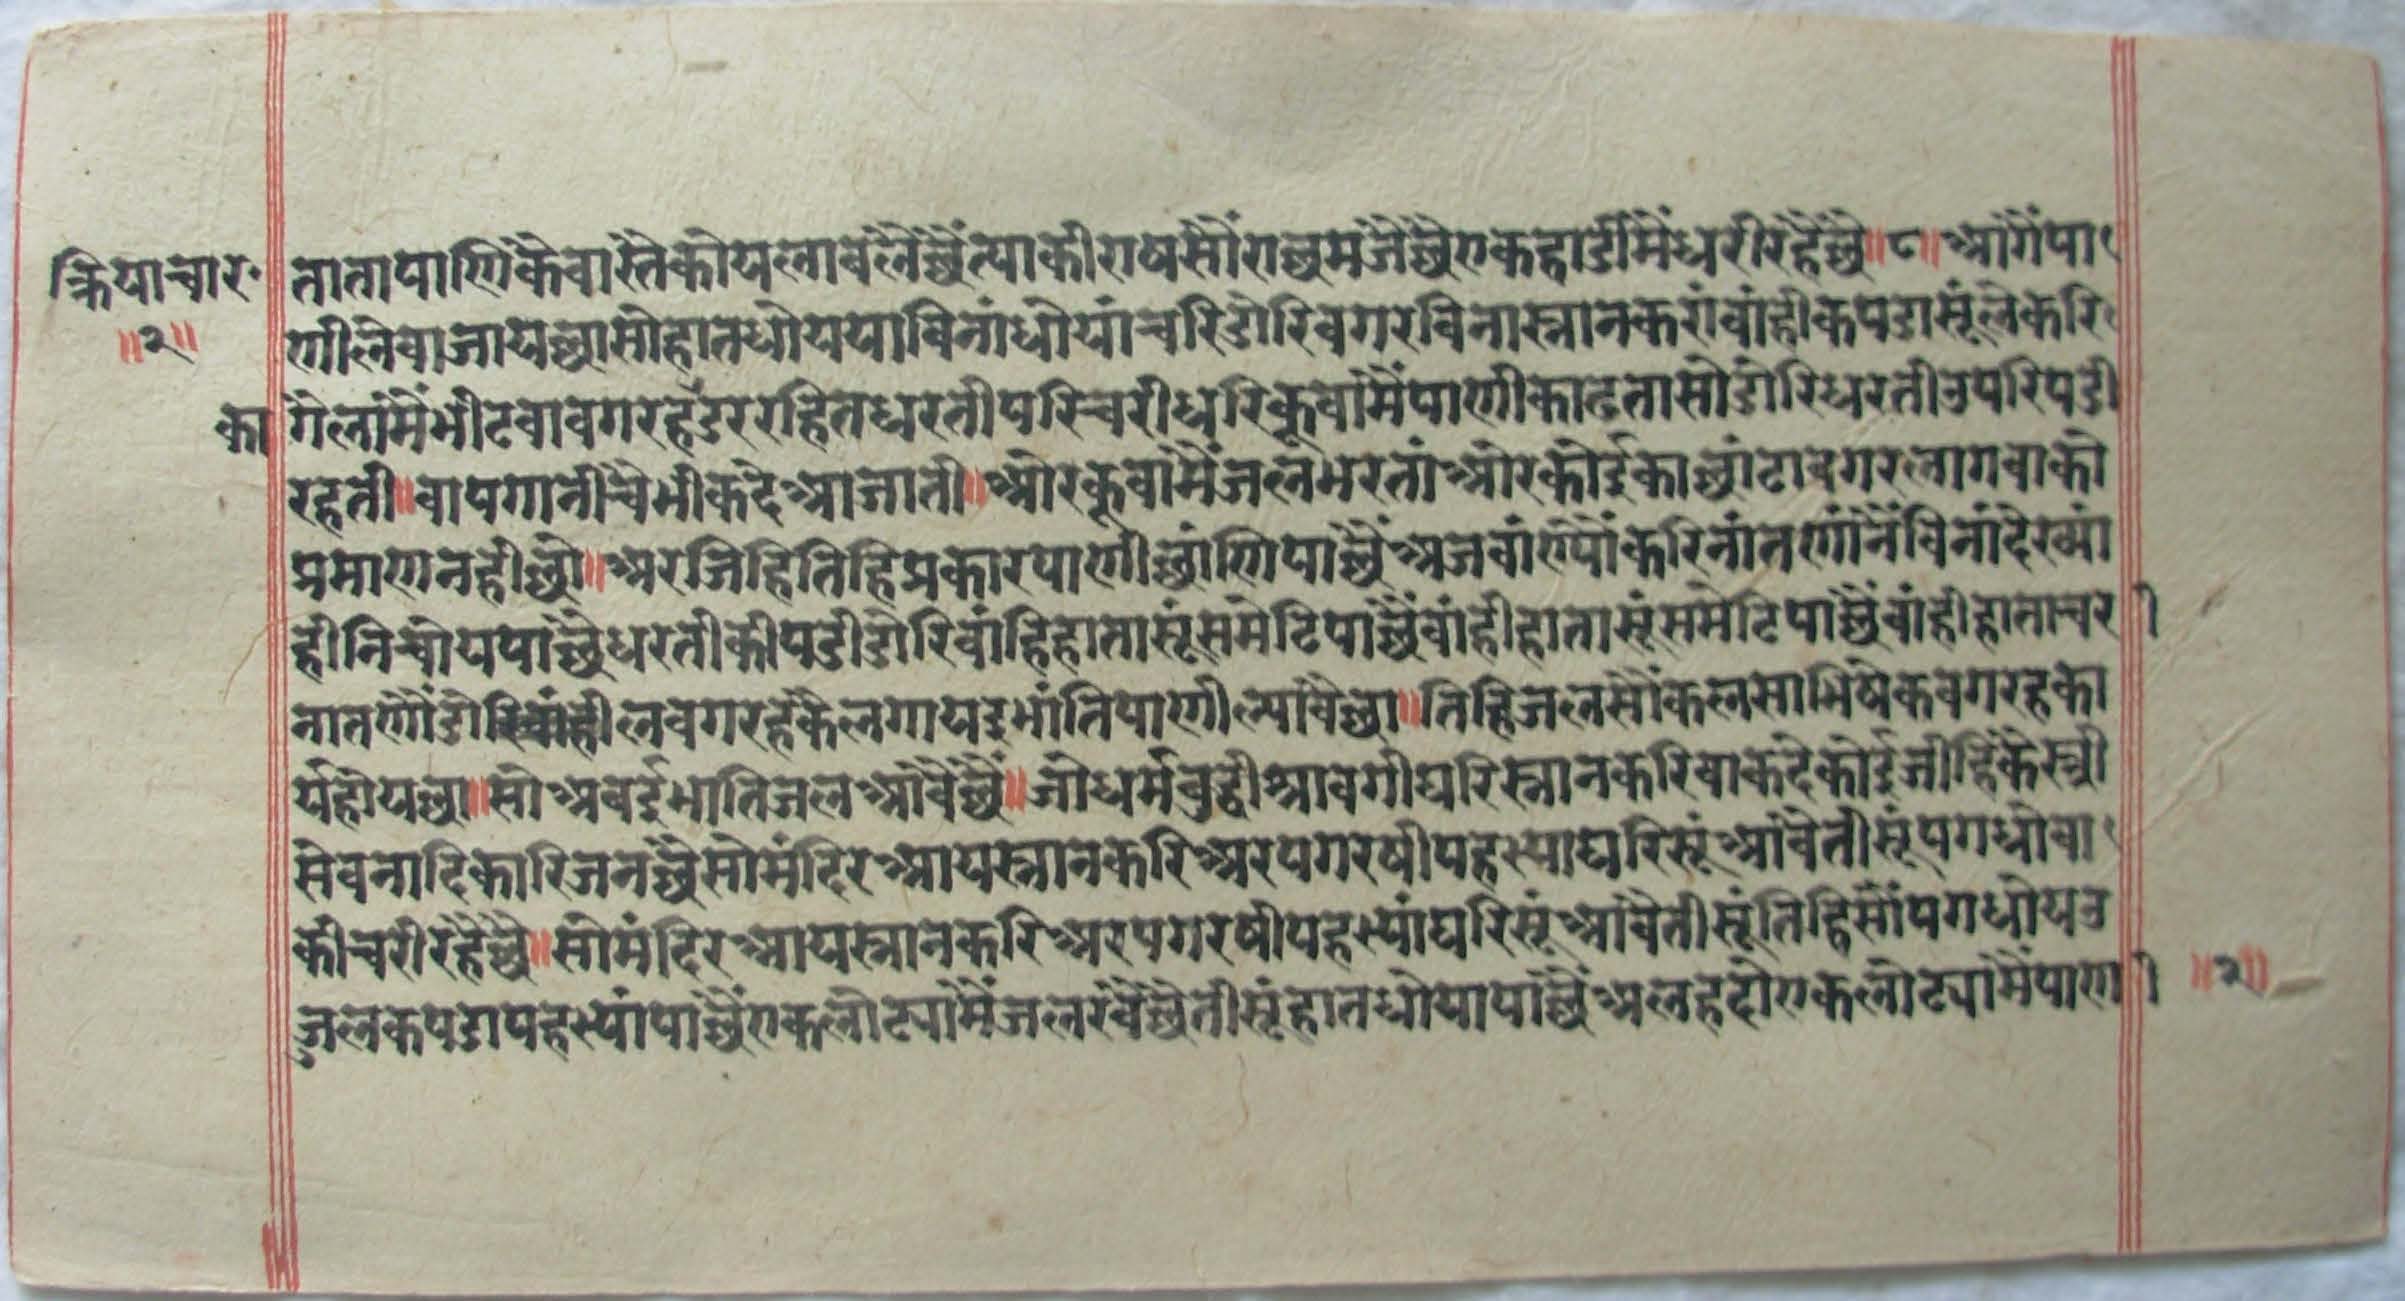 क्रियाचार
॥२॥
तातापाणिकैवास्तैकोयलावालैछैंत्याकीराषसौंराछमजैछैएकहाडीमैंधरीरहैछै॥८॥आगैंपा
णीलेवाजायछासोहातधोययाविनांधोयांचरिडोरिवगरविनास्नानकरांवांहीकपडासूंलेकरि
का गेलांमैंभीटवावगरहडररहितधरतीपरिचरीधरिकूवांमैंपाणीकाढतासोडोरिधरतीउपरिपडी
रहती॥वापगानीचैभीकदैआजाती॥ओरकूवांमैंजलभरतांओरकोईकाछांटावगरलागवाको
प्रमाणनहीछो॥अरजिहितिहिप्रकारपाणीछांणिपाछैंअजवांणैपौंकरिनांतणांनैंविनांदेख्यां
हीनिचोयपाछैधरतीकीपडीडोरिवांहिहातासूंसमेटिपाछैंवांहीहातासूंसमेटिपाछैंवांहीहाताचरी
नातणौंडोरिवांहीलवगरहकैलगायइभांतिपाणील्यांवैछा॥तिहिजलसौंकलसाभिषेकवगरहका
र्यहोयछा॥सोअबईभांतिजलआंवैछैं॥जोधर्मबुद्धीश्रावगीघरिस्नानकरिवाकदेकोईजीहिंकैस्त्री
सेवनादिकारिजनछैसोमंदिरआयस्नानकरिअरपगरषीपहस्याघरिसूंआंवैतीसूंपगधोवा
कीचरीरहैछै॥सोमंदिरआयस्नानकरिअरपगरषीपहस्यांघरिसूंआंवैतीसूंतिहिसौंपगधोयउ
जलकपडापहस्यांपाछैंएकलोट्यांमैंजलरंवैछैतीसूंहातधोयापाछैंअलहदोएकलोट्यांमैंपाणी
॥२॥